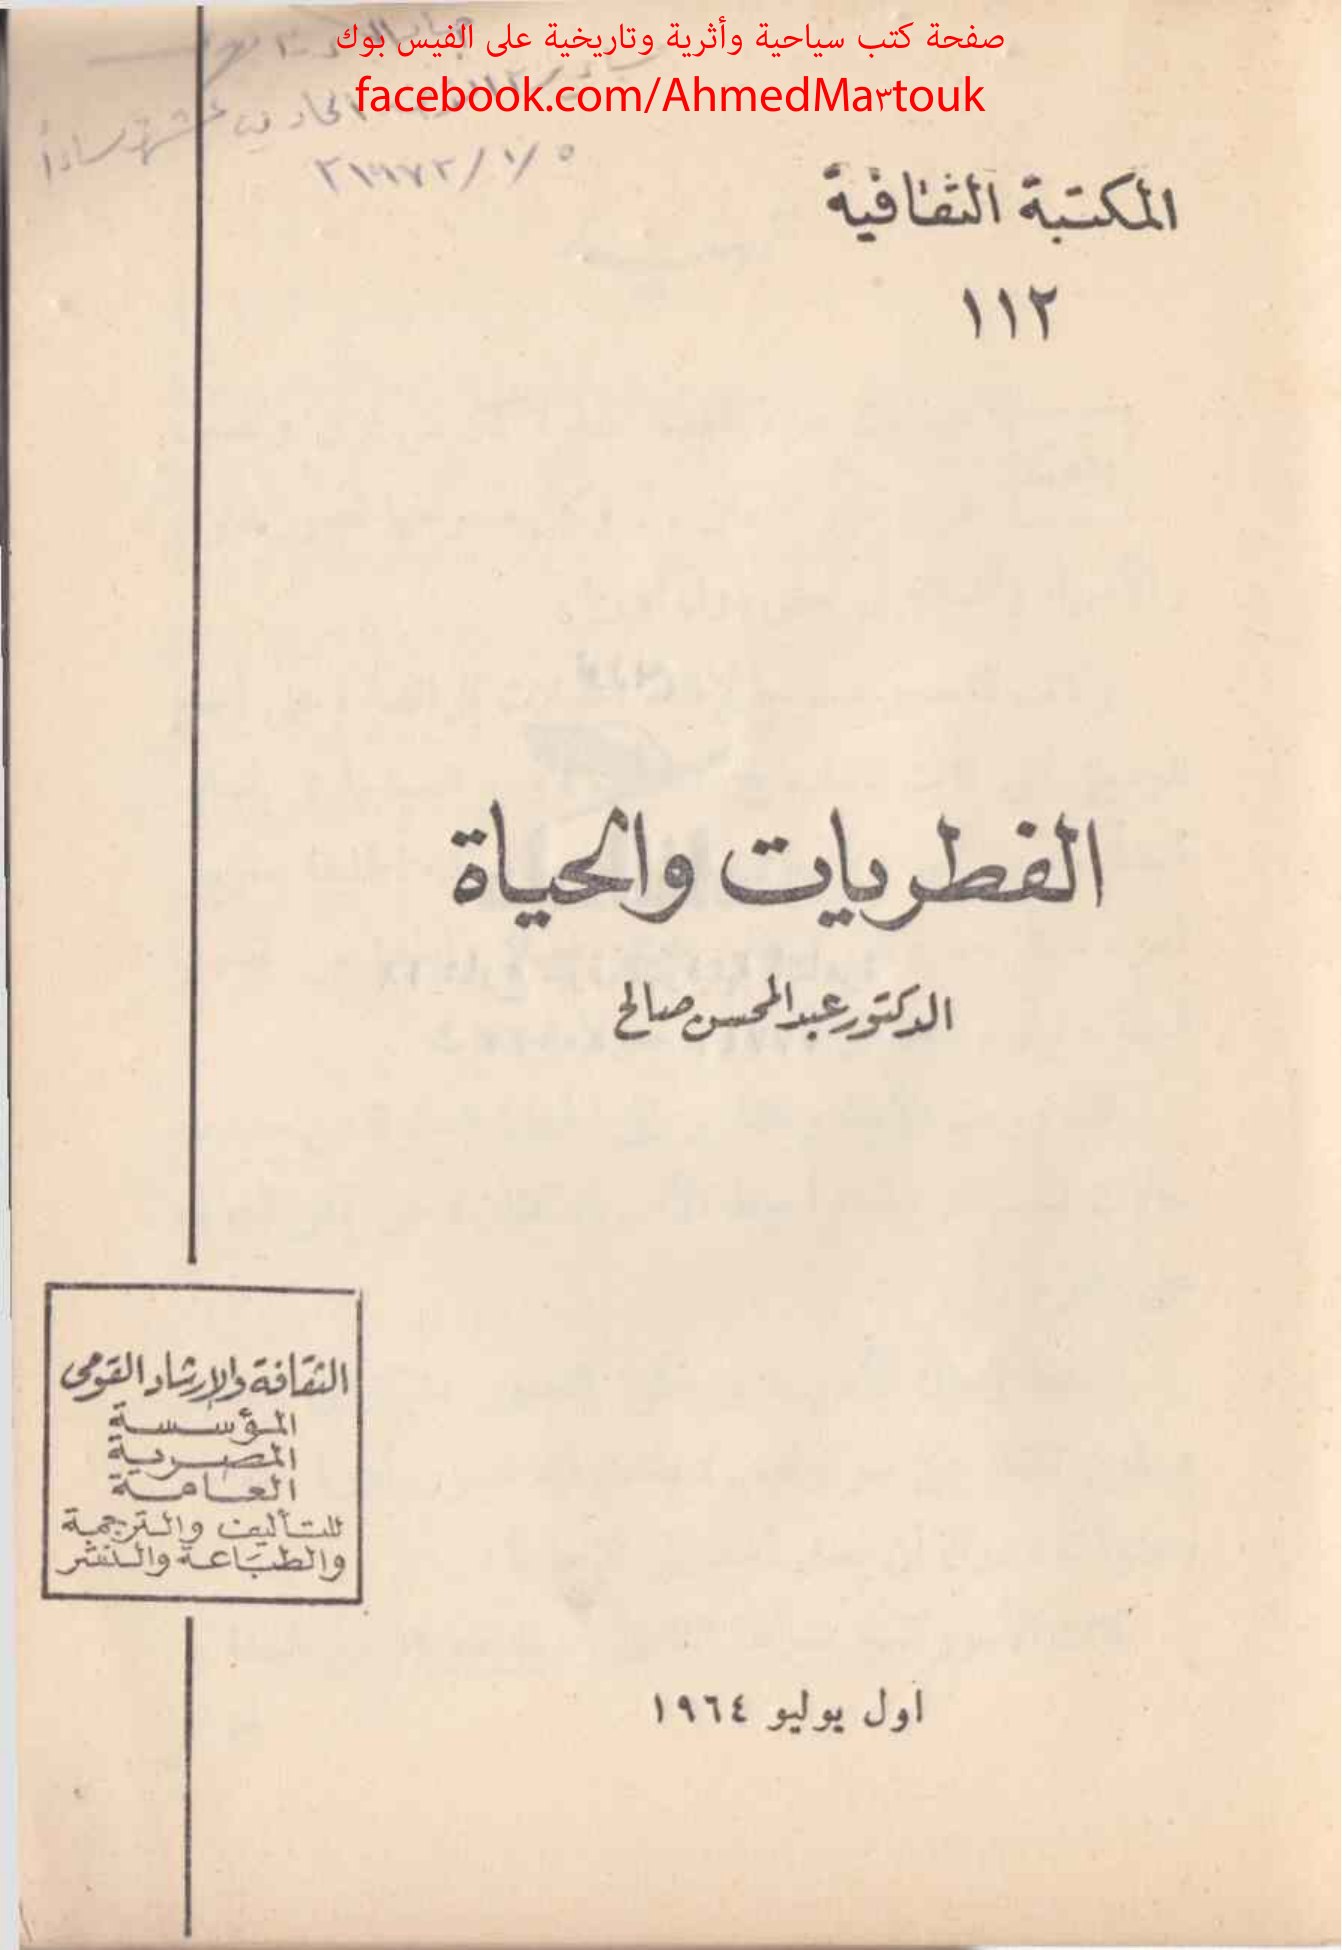 صفحة كتب سياحية وأثرية وتاريخية على الفيس بوك
facebook.com/AhmedMa٣touk
المكتبة الثقافية
١١٢
الفطريات والحياة
الدكتور عبد المحسن صالح
الثقافة والإرشاد القومى
المؤسسة
المصرية
العامة
للتأليف والترجمة
والطباعة والنشر
اول يوليو ١٩٦٤